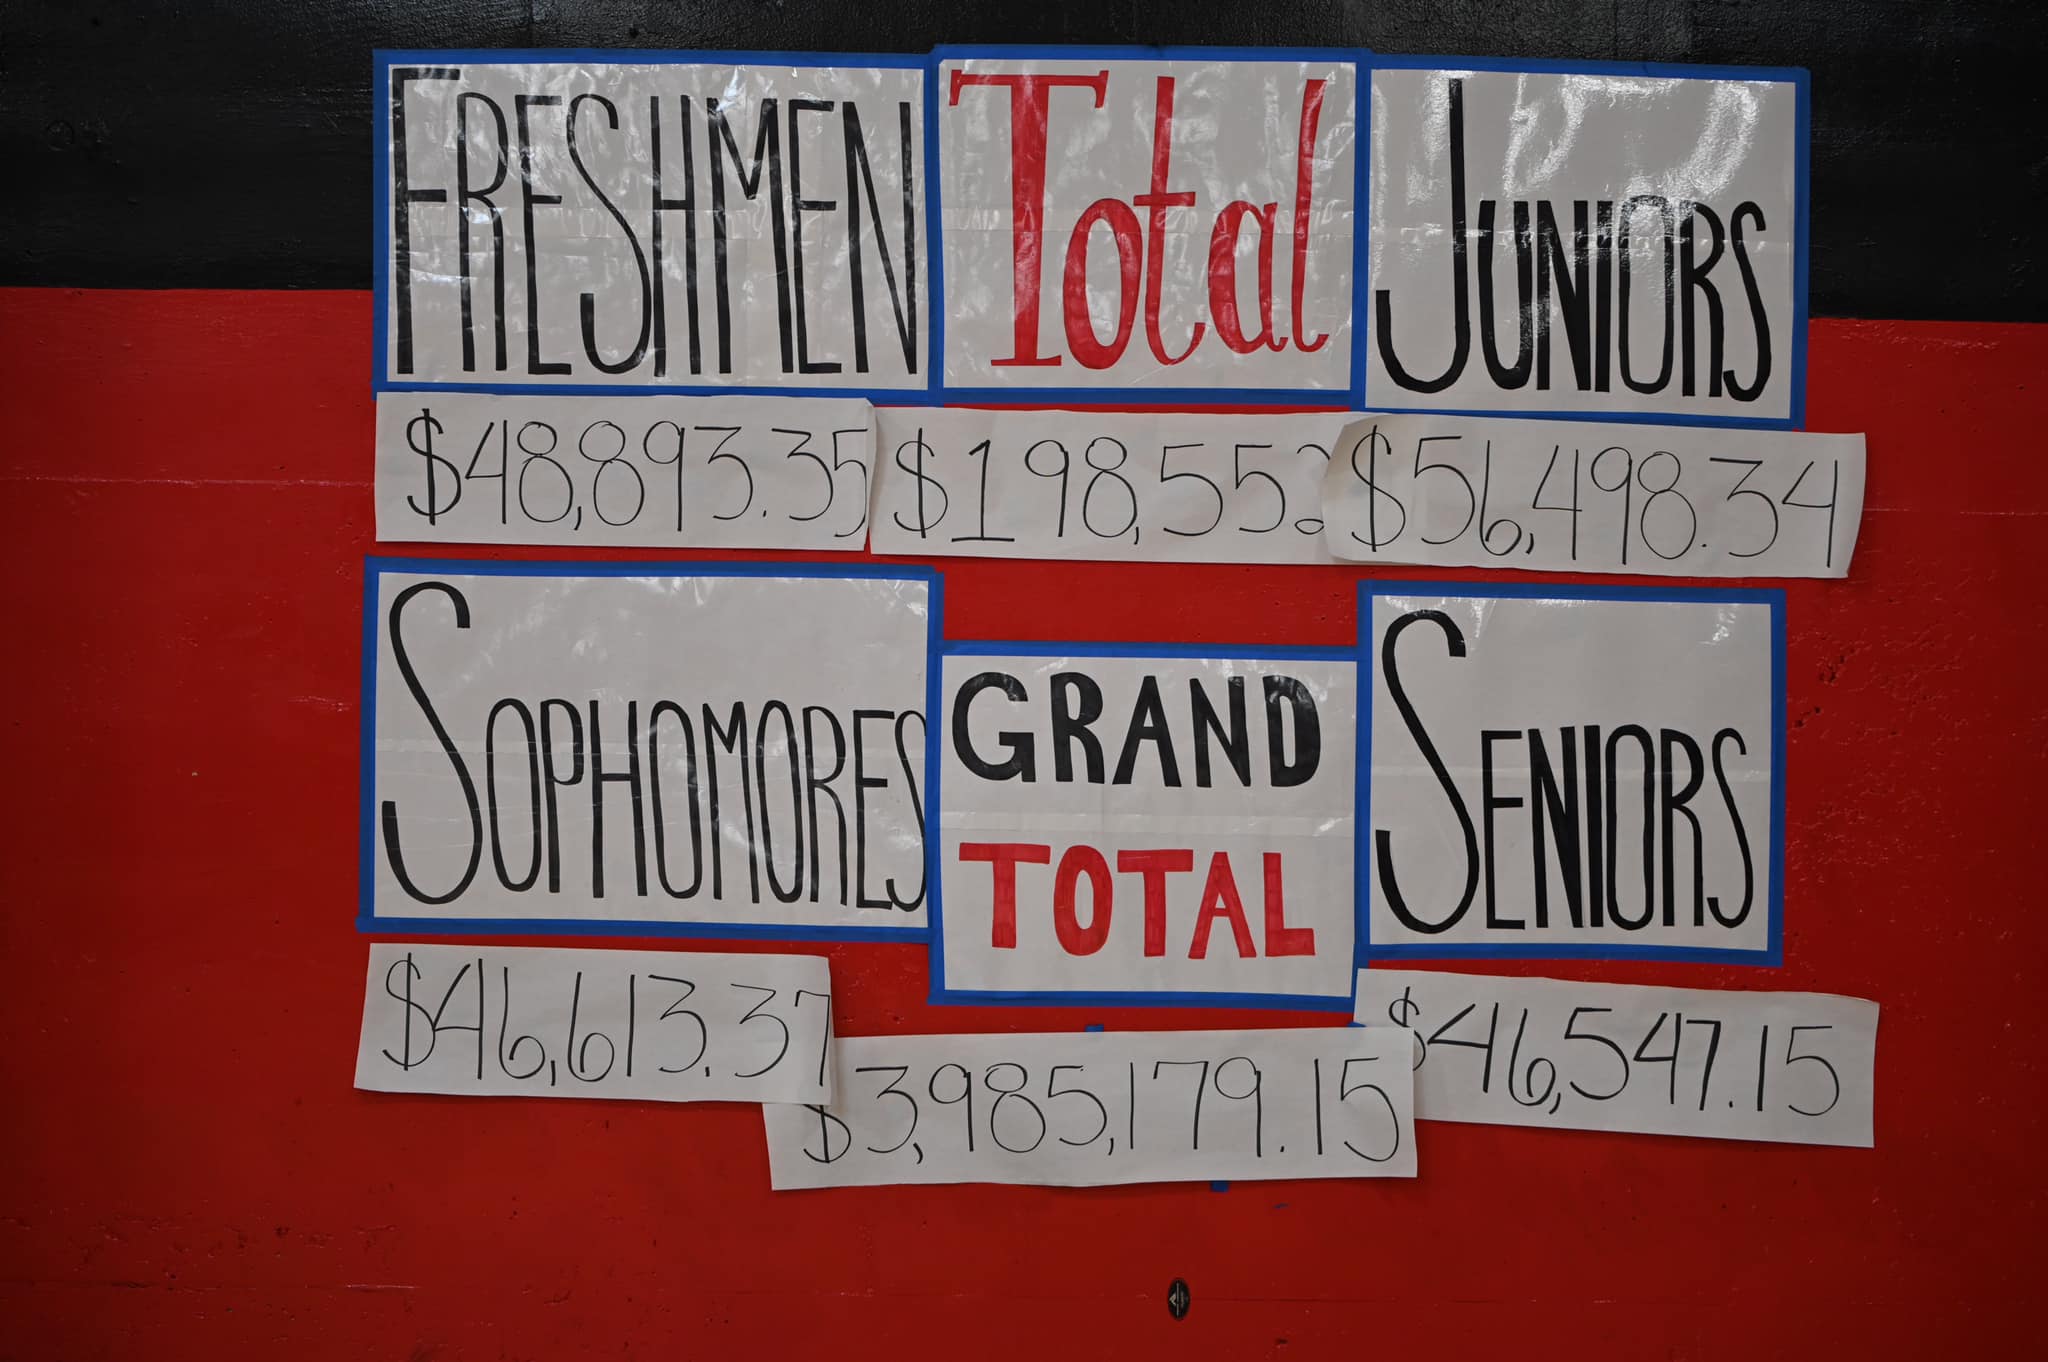 FRESHMEN
$48,893.35
Total
$198,552
JUNIORS
$56,498.34
SOPHOMORES
$46,613.37
GRAND
TOTAL
$3,985,179.15
SENIORS
$46,547.15